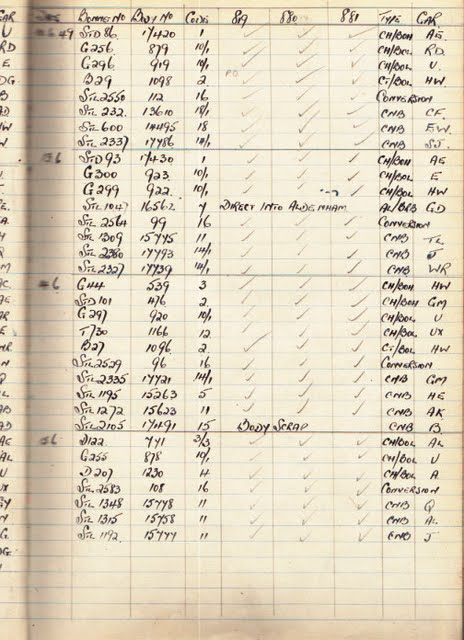 BONNET NO BODY NO CODE 879 880 881 TYPE GAR
49 STD 86 17420 1 CH/BOH AE
G256 879 10/1 CH/BOL RD
G296 919 10/1 CH/BOL U
B29 1098 2 PO CT/BOL HW
STL 2550 112 16 CONVERSION
STL 232 13610 18/1 CNB CF
STL 600 14495 18 CNB EW
STL 2337 17786 14/1 CNB SJ
STD 93 17430 1 CH/BOH AE
G300 923 10/1 CH/BOL E
G299 922 10/1 CH/BOL HW
STL 1047 DIRECT INTO ALDENHAM GD
STL 2564 99 16 CONVERSION
STL 1309 15775 11 CNB TL
STL 2380 17793 14/1 CNB J
STL 2327 17739 14/1 CNB WR
G44 539 3 CH/BOH HW
STD 101 476 2 CH/BOH GM
G297 920 10/1 CH/BOL U
T/30 1166 12 CH/BOL UX
B27 1096 2 CT/BOL HW
STL 2529 96 16 CONVERSION
STL 2335 17721 14/1 CNB GM
STL 1195 15263 5 CNB HE
STL 1272 15623 11 CNB AK
STL 2105 17491 15 BODY SCRAP CNB B
D122 771 3/3 CH/BOL AL
G255 878 10/1 CH/BOL U
D207 1230 4 CH/BOL A
STL 2583 108 16 CONVERSION
STL 1348 15778 11 CNB Q
STL 1315 15758 11 CNB AL
STL 1192 15777 11 CNB J